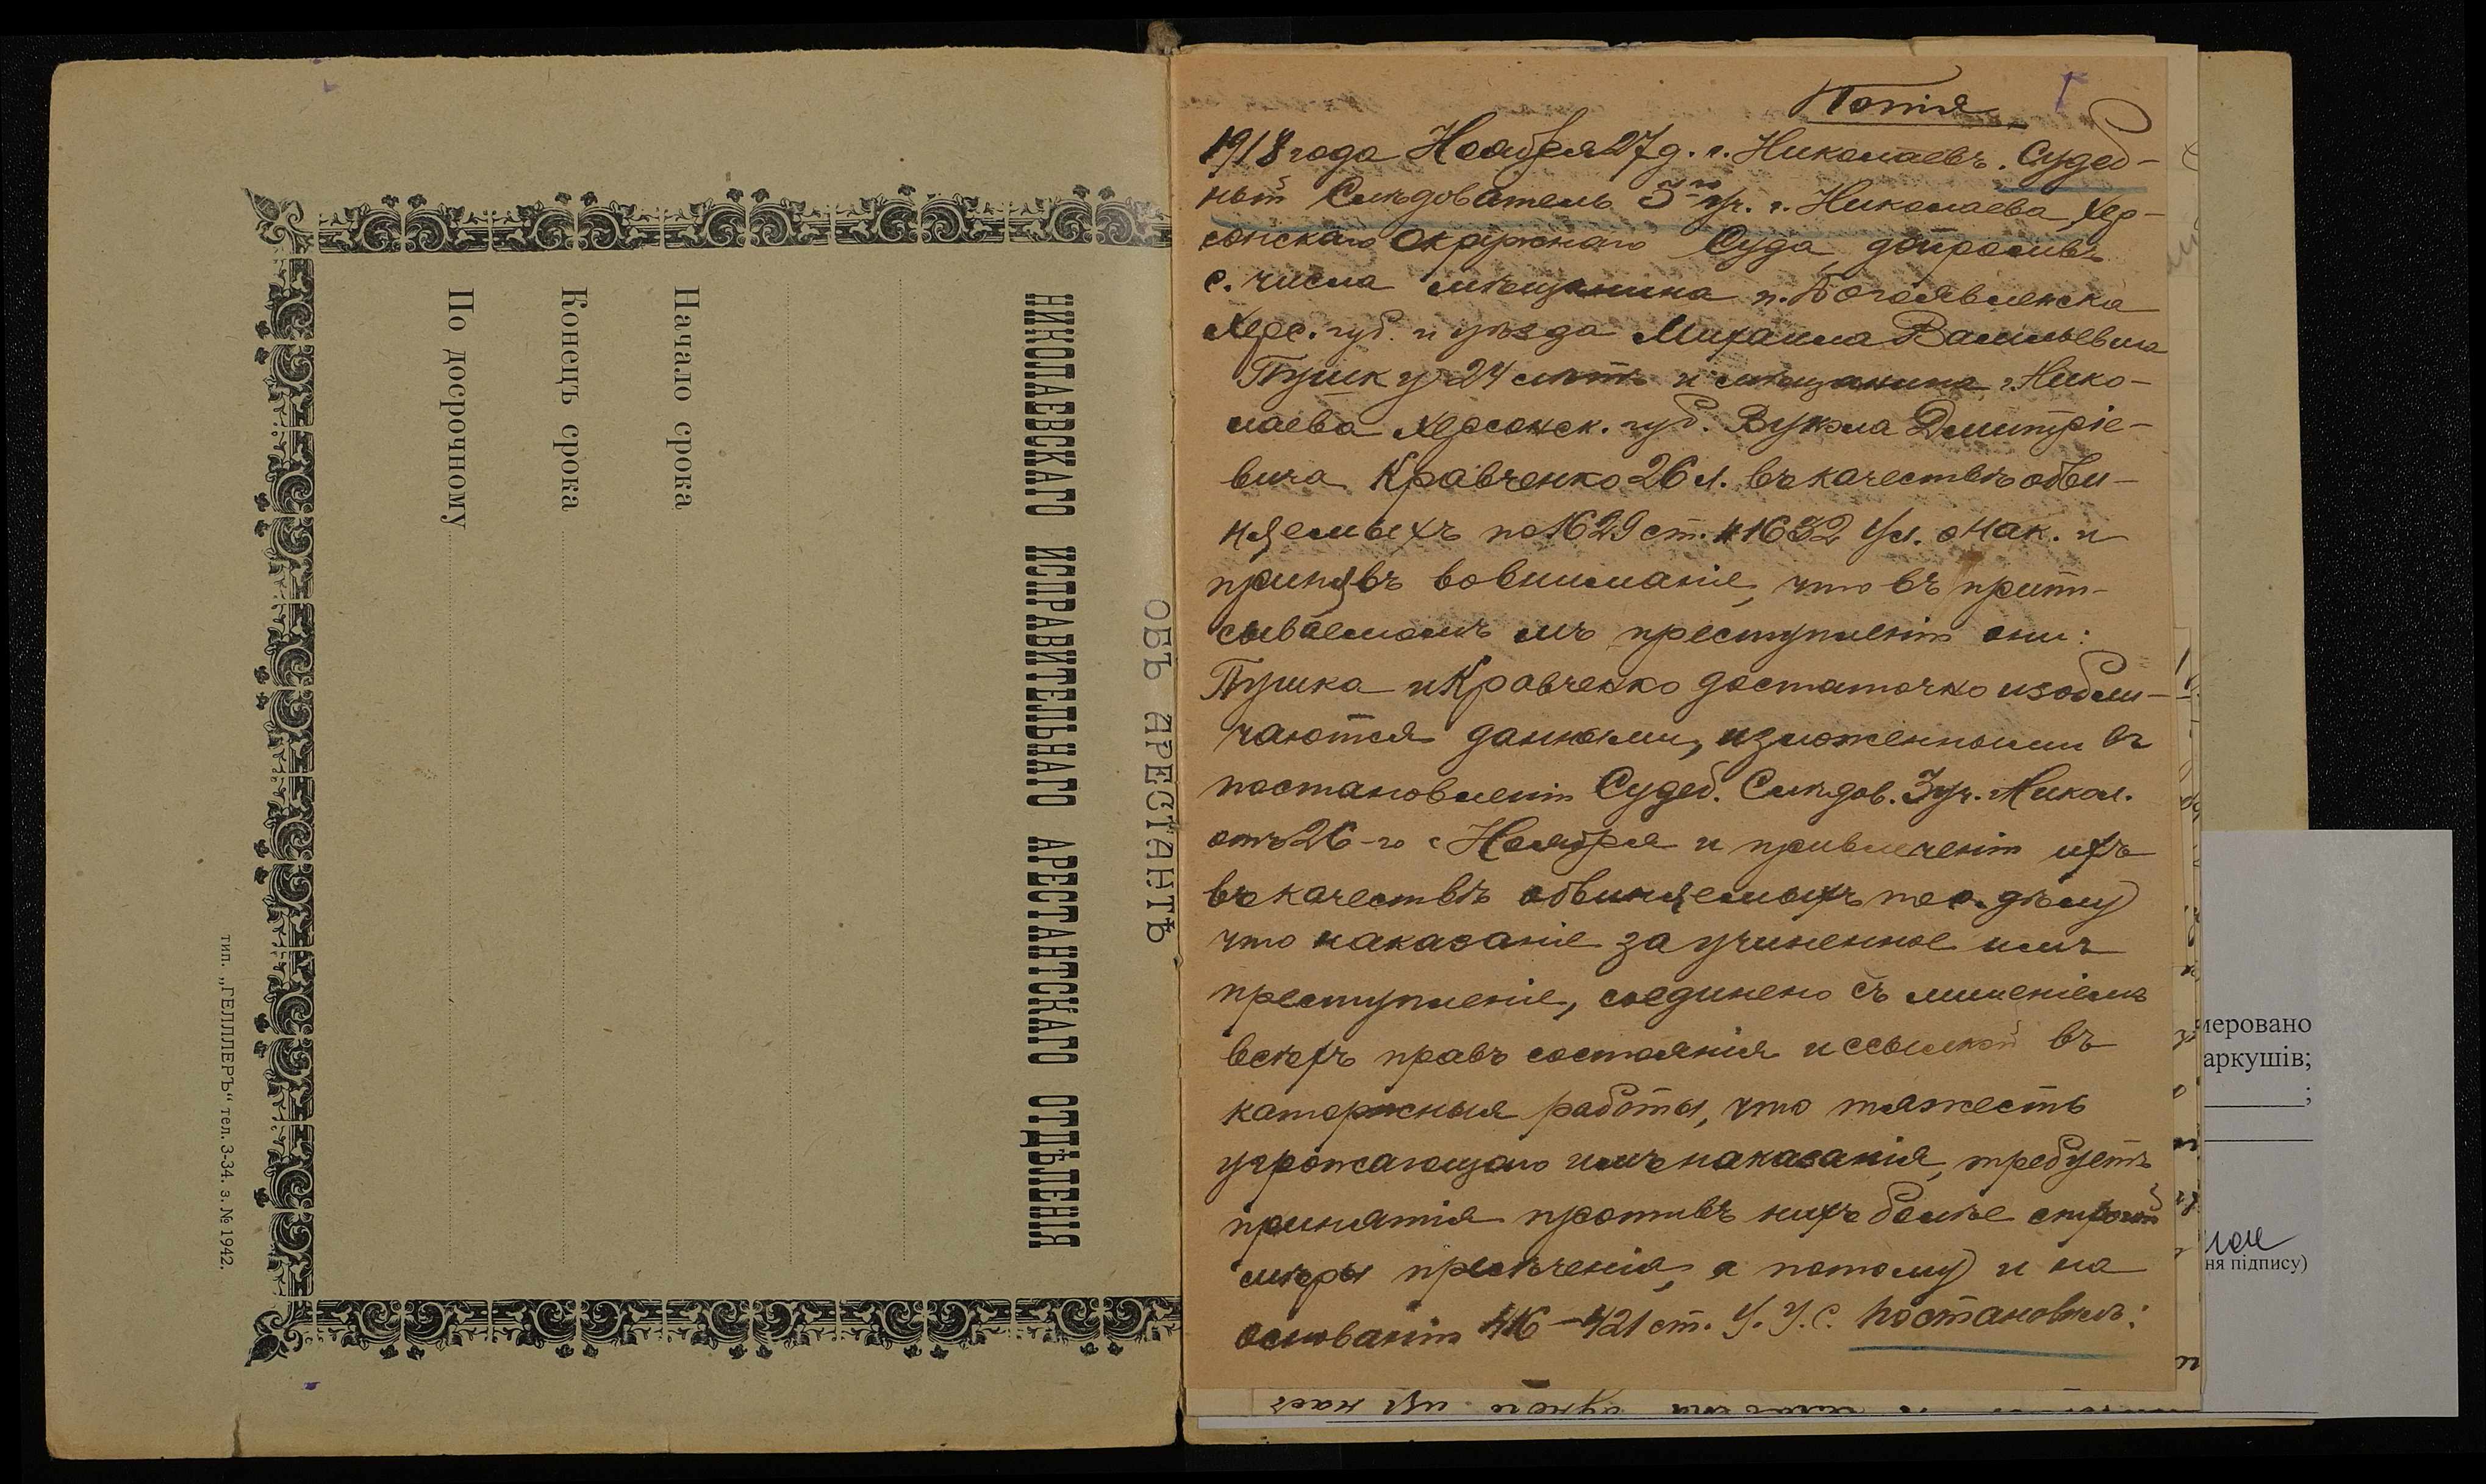 НИКОЛАЕВСКАГО ИСПРАВИТЕЛЬНАГО АРЕСТАНТСКАГО ОТДѢЛЕНІЯ
ОБЪ АРЕСТАНТѢ
Начало срока
Конецъ срока
По досрочному
тип. „ГЕЛЛЕРЪ“ тел. 3-34. з. № 1942.
Копія
1918 года Ноября 27 д. г. Николаевъ. Судеб-
ный Слѣдователь 3го уч. г. Николаева, Хер-
сонскаго Окружнаго Суда, допросивъ
с. числа мѣщанина п. Богоявленска
Херс. губ. и уѣзда Михаила Васильевича
Пушку 24 лѣтъ и мѣщанина г. Нико-
лаева Херсонск. губ. Вукола Дмитріе-
вича Кравченко 26 л. въ качествѣ обви-
няемыхъ по 1629 ст. и 1632 Ул. о Нак. и
принявъ во вниманіе, что въ припи-
сываемомъ имъ преступленіи они:
Пушка и Кравченко достаточно изобли-
чаются данными, изложенными въ
постановленіи Судеб. Слѣдов. 3 уч. г. Никол.
отъ 26-го Ноября и привлеченіи ихъ
въ качествѣ обвиняемыхъ по с. дѣлу
что наказаніе за учиненное имъ
преступленіе, соединено съ лишеніемъ
всѣхъ правъ состоянія и ссылкой въ
каторжныя работы, что тяжесть
угрожающаго имъ наказанія, требуетъ
принятія противъ нихъ болѣе строгой
мѣры пресѣченія, а потому и на
основаніи 416-421 ст. У. У. С. постановилъ:
меровано
аркушів;
;
ня підпису)